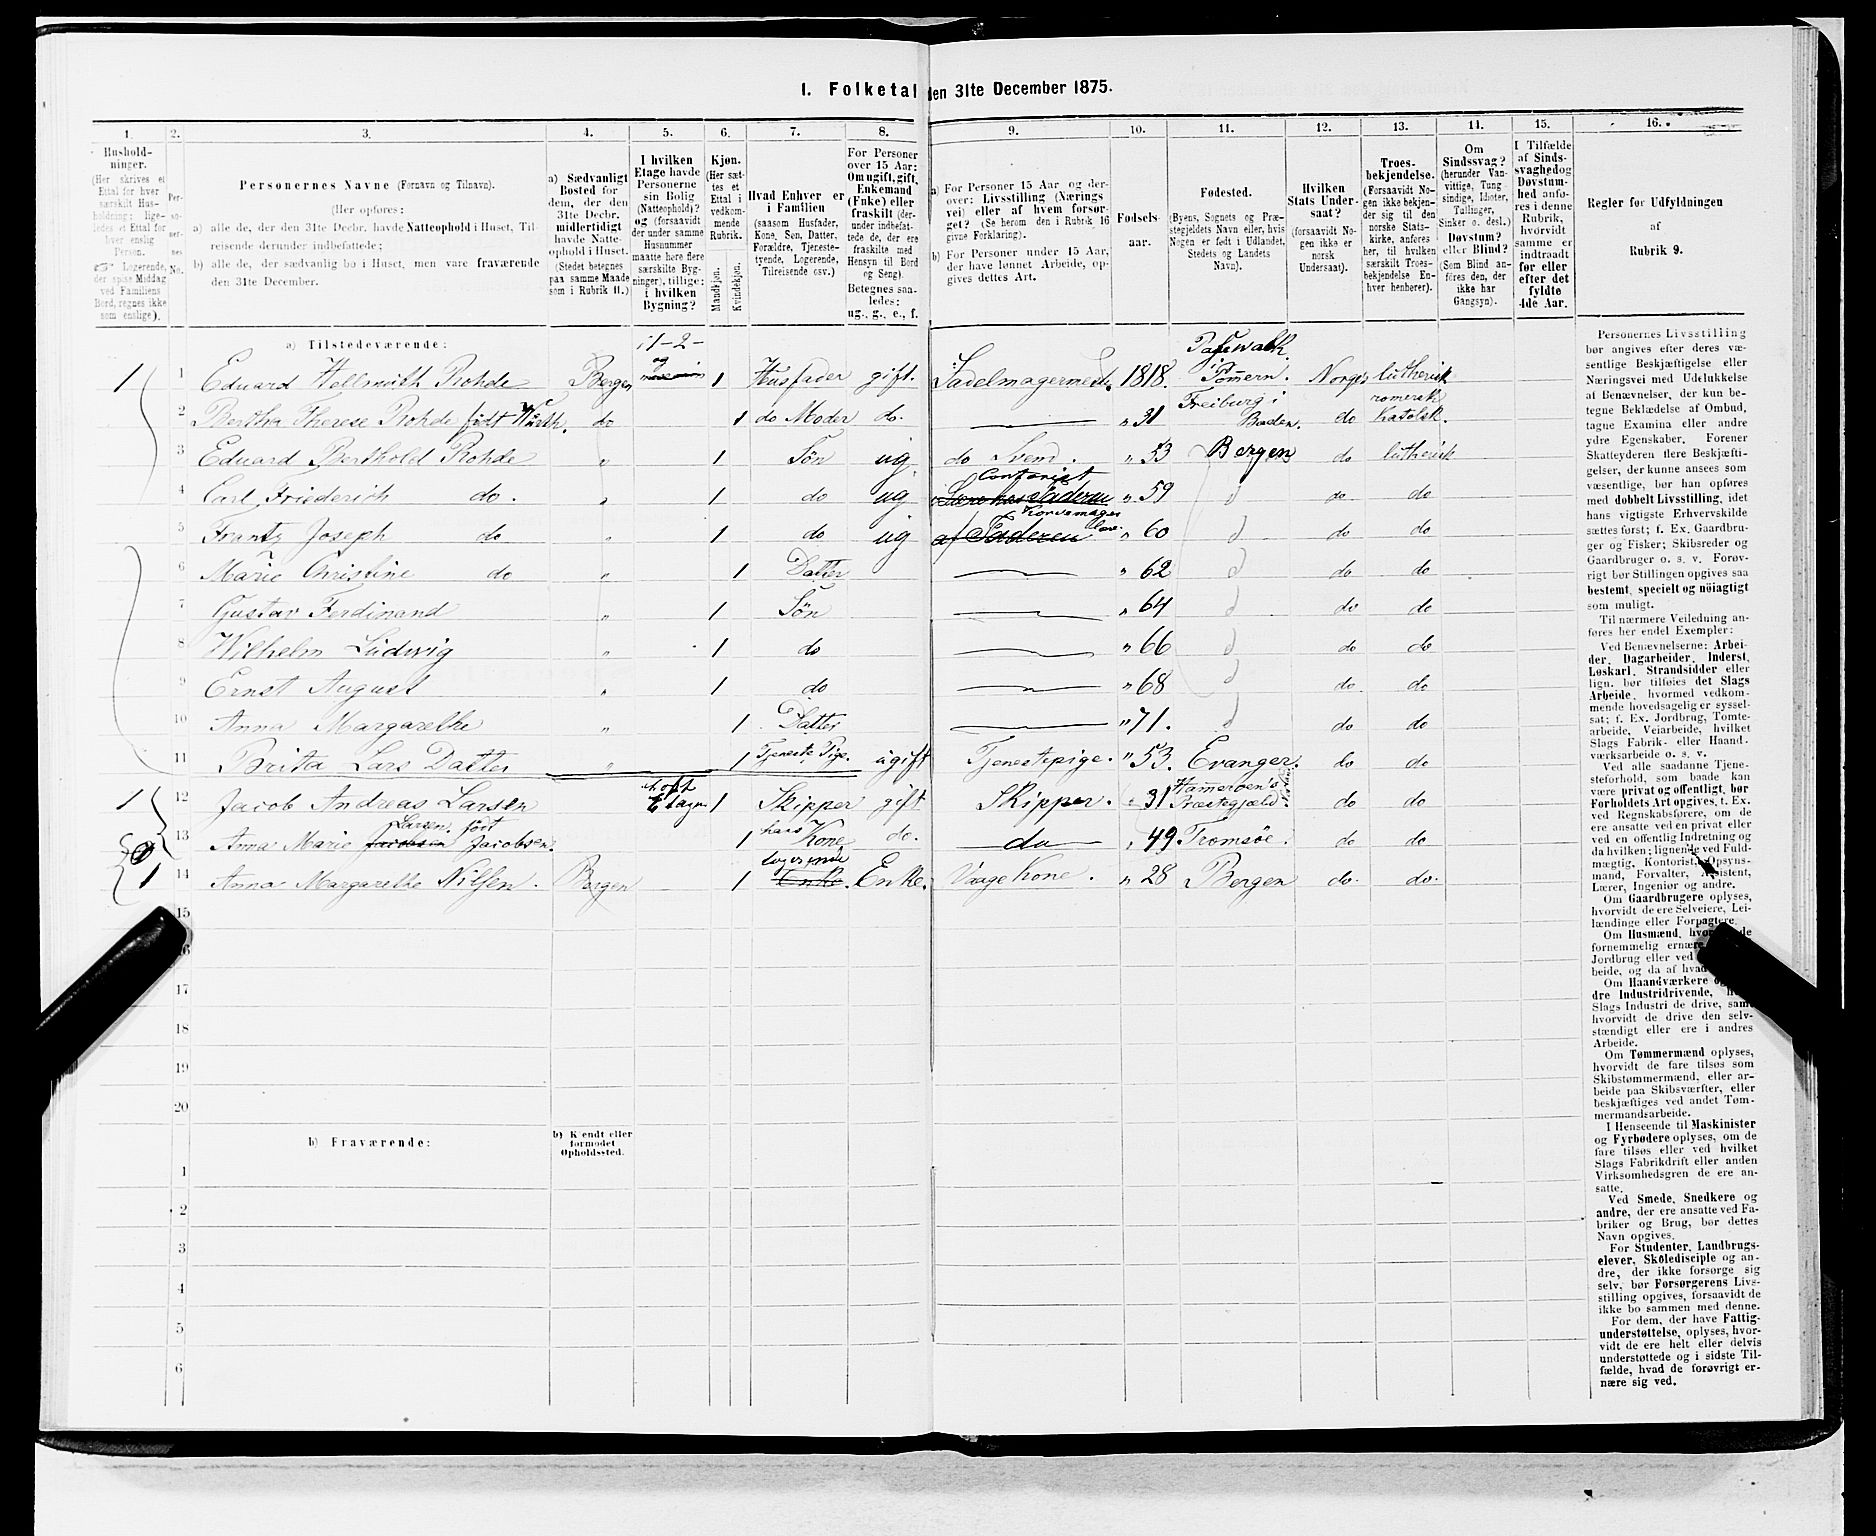 I. Folketal den 31te December 1875.
1. 2. 3. 4. 5. 6. 7. 8. 9. 10. 11. 12. 13. 14. 15. 16.
Husholdninger.
(Her skrives et
Ettal for hver
særskilt Husholdning; ligeledes
et Ettal for
hver enslig
Person.
Logerende,
der spise Middag
ved Familiens
Bord, regnes ikke
som enslige).
Personernes No.
Personernes Navne (Fornavn og Tilnavn).
(Her opføres:
a) alle de, der den 31te Decbr. havde Natteophold i Huset, Tilreisende derunder indbefattede;
b) alle de, der sædvanlig bo i Huset, men vare fraværende
den 31te December.
a) Sædvanligt
Bosted for
dem, der den
31te Decbr.
midlertidigt
havde Natteophold i Huset.
(Stedet betegnes
paa samme Maade
som i Rubrik 11.)
I hvilken
Etage havde
Personerne
sin Bolig
(Natteophold)?
og (forsaavidt
der under samme
Husnummer
maatte høre flere
særskilte Bygninger), tillige:
i hvilken
Bygning?
Kjøn.
(Her sættes et
Ettal i
vedkommende
Rubrik.
Mandkjøn.
Kvindekjøn.
Hvad Enhver er
i Familien
(saasom Husfader,
Kone, Søn, Datter,
Forældre, Tjenestetyende, Logerende,
Tilreisende osv.)
For Personer
over 15 Aar:
Om ugift, gift,
Enkemand
(Enke) eller
fraskilt (derunder indbefattede de, der ere
fraskilte med
Hensyn til Bord
og Seng).
Betegnes saaledes:
ug., g., e., f.
a) For Personer 15 Aar og derover: Livsstilling (Næringsvei) eller af hvem forsørget? (Se herom den i Rubrik 16
givne Forklaring).
b) For Personer under 15 Aar,
der have lønnet Arbeide, opgives dettes Art.
Fødselsaar.
Fødested.
(Byens, Sognets og Præstegjeldets Navn eller, hvis
Nogen er født i Udlandet,
Stedets og Landets
Navn).
Hvilken
Stats Undersaat?
(forsaavidt Nogen ikke er
norsk
Undersaat).
Troesbekjendelse.
(Forsaavidt Nogen ikke bekjender sig til den
norske Statskirke, anføres
her, til hvilken
særskilt Troesbekjendelse Enhver henhører).
Om
Sindssvag?
(herunder Vanvittige, Tungsindige, Idioter,
Tullinger,
Sinker o. desl.)
Døvstum?
eller Blind?
(Som Blind anføres den, der
ikke har
Gangsyn).
I Tilfælde
af Sindssvaghed og
Døvstumhed anføres i denne
Rubrik,
hvorvidt
samme er
indtraadt
før eller
efter det
fyldte
4de Aar.
Regler for Udfyldningen
af
Rubrik 9.
a) Tilstedeværende:
1 1 Eduard Hellmuth Rohde Bergen 1-2- og 1 Husfader gift. Sadelmagermest. 1818. Pasewalk i Pommern. Norges luthersk
2 Bertha Therese Rohde født Würth. do 1 do Moder do. " 31 Freiburg i Baden. do romersk Katolsk.
3 Eduard Berthold Rohde " 1 Søn ug. do Svend. " 53 Bergen do luthersk
4 Carl Friederich do. " 1 do ug Contorist " 59 do do
5 Frantz Joseph do " 1 do ug af Faderen " 60 do do
6 Marie Christine do " 1 Datter " 62 do do
7 Gustav Ferdinand " 1 Søn " 64 do do
8 Wilhelm Ludwig " 1 do " 66 do do
9 Ernst August " 1 do " 68 do. do
10 Anna Margarethe " 1 Datter " 71. do do
11 Brita Lars Datter " 1 Tjeneste Pige. ugift Tjenestepige. " 53. Evanger. do do
1 12 Jacob Andreas Larsen Etagen 1 Skipper gift Skipper. " 31 Hammerøen's Præstegjæld. do do
0 13 Anna Marie Jacobsen Larsen født Jacobsen. 1 hans Kone do. do " 49 Tromsøe. do do
1 14 Anna Margarethe Nilsen. Bergen 1 logerende Enke. Enke. Vaage Kone. " 28 Bergen do. do.
15
16
17
18
19
20
b) Fraværende:
b) Kendt eller
formodet
Opholdssted.
1
2
3
4
5
6
Personernes Livsstilling
bør angives efter deres væsentlige Beskjæftigelse eller
Næringsvei med Udelukkelse
af Benævnelser, der kun betegne Beklædelse af Ombud,
tagne Examina eller andre
ydre Egenskaber. Forener
Skatteyderen flere Beskjæftigelser, der kunne ansees som
væsentlige, bør han opføres
med dobbelt Livsstilling, idet
hans vigtigste Erhvervskilde
sættes først; f. Ex. Gaardbruger og Fisker; Skibsreder og
Gaardbruger o. s. v. Forøvrigt bør Stillingen opgives saa
bestemt, specielt og nøiagtigt
som muligt.
Til nærmere Veiledning anføres her endel Exempler:
Ved Benævnelserne: Arbeider, Dagarbeider, Inderst,
Løskarl, Strandsidder eller
lign. bør tilføies det Slags
Arbeide, hvormed vedkommende hovedsagelig er sysselsat; f. Ex. Jordbrug, Tomtearbeide, Veiarbeide, hvilket
Slags Fabrik- eller Haandværksarbeide o. s. v.
Ved alle saadanne Tjenesteforhold, som baade kan
være privat og offentlig, bør
Forholdets Art opgives, t. Ex.
ved Regnskabsførere, om de
ere ansatte ved en privat eller
ved en offentlig Indretning og
da hvilken; lignende ved Fuldmægtig, Kontorist, Opsynsmand, Forvalter, Assistent,
Lærer, Ingeniør og andre.
Om Gaardbrugere oplyses,
hvorvidt de ere Selveiere, Leilændinge eller Forpagtere.
Om Husmænd,
fornemmelig
Jordbrug eller ved
beide, og da af hvad
Om Haandværkere
dre Industridrivende,
Slags Industri de drive, samt
hvorvidt de drive den selvstændigt eller ere i andres
Arbeide.
Om Tømmermænd oplyses,
hvorvidt de fare tilsøs som
Skibstømmermænd, eller arbeide paa Skibsværfter, eller
beskjæftiges ved andet Tømmermandsarbeide.
I Henseende til Maskinister
og Fyrbødere oplyses, om de
fare tilsøs eller ved hvilket
Slags Fabrikdrift eller anden
Virksomhedsgren de ere ansatte.
Ved Smede, Snedkere og
andre, der ere ansatte ved Fabriker og Brug, bør dettes
Navn opgives.
For Studenter, Landbrugselever, Skoledisciple og andre, der ikke forsørge sig
selv, bør Forsørgerens Livsstilling opgives, forsaavidt de
ikke bo sammen med denne.
For dem, der have Fattigunderstøttelse, oplyses, hvorvidt de ere helt eller delvis
understøttede og i sidste Tilfælde, hvad de forøvrigt ernære sig ved.